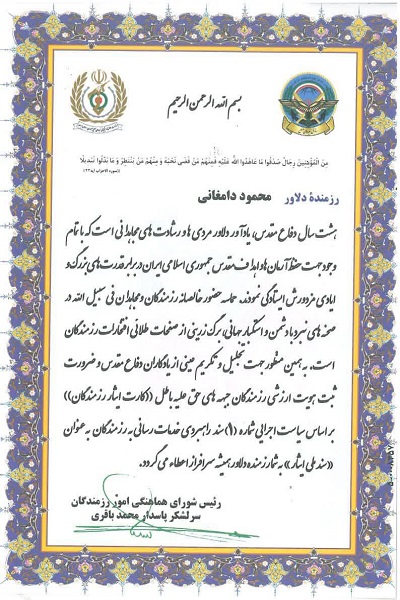 بسم الله الرحمن الرحیم
مِنَ الْمُؤْمِنِینَ رِجَالٌ صَدَقُوا مَا عَاهَدُوا اللَّهَ عَلَیْهِ فَمِنْهُمْ مَنْ قَضَى نَحْبَهُ وَ مِنْهُمْ مَنْ یَنْتَظِرُ وَ مَا بَدَّلُوا تَبْدِیلًا
رزمندهٔ دلاور محمود دامغانی
هشت سال دفاع مقدس، یادآور دلاور مردی ها و رشادت های مجاهدانی است که با تمام
وجود جهت حفظ آرمان ها و اهداف مقدس جمهوری اسلامی ایران در برابر قدرت های بزرگ و
ایادی مزدورش ایستادگی نمودند. حماسه حضور خالصانه رزمندگان و مجاهدان فی سبیل الله در
صحنه های نبرد با دشمن و استکبار جهانی، برگ زرینی از صفحات طلائی افتخارات رزمندگان
است، به همین منظور جهت تجلیل و تکریم عینی از یادگاران دفاع مقدس و ضرورت
ثبت هویت ارزشی رزمندگان جبهه های حق علیه باطل ((کارت ایثار رزمندگان))
بر اساس سیاست اجرائی شماره (۹) سند راهبردی خدمات رسانی به رزمندگان به عنوان
«سند ملی ایثار» به شما رزمنده دلاور همیشه سرافراز اعطاء می گردد.
رئیس شورای هماهنگی امور رزمندگان
سرلشکر پاسدار محمد باقری